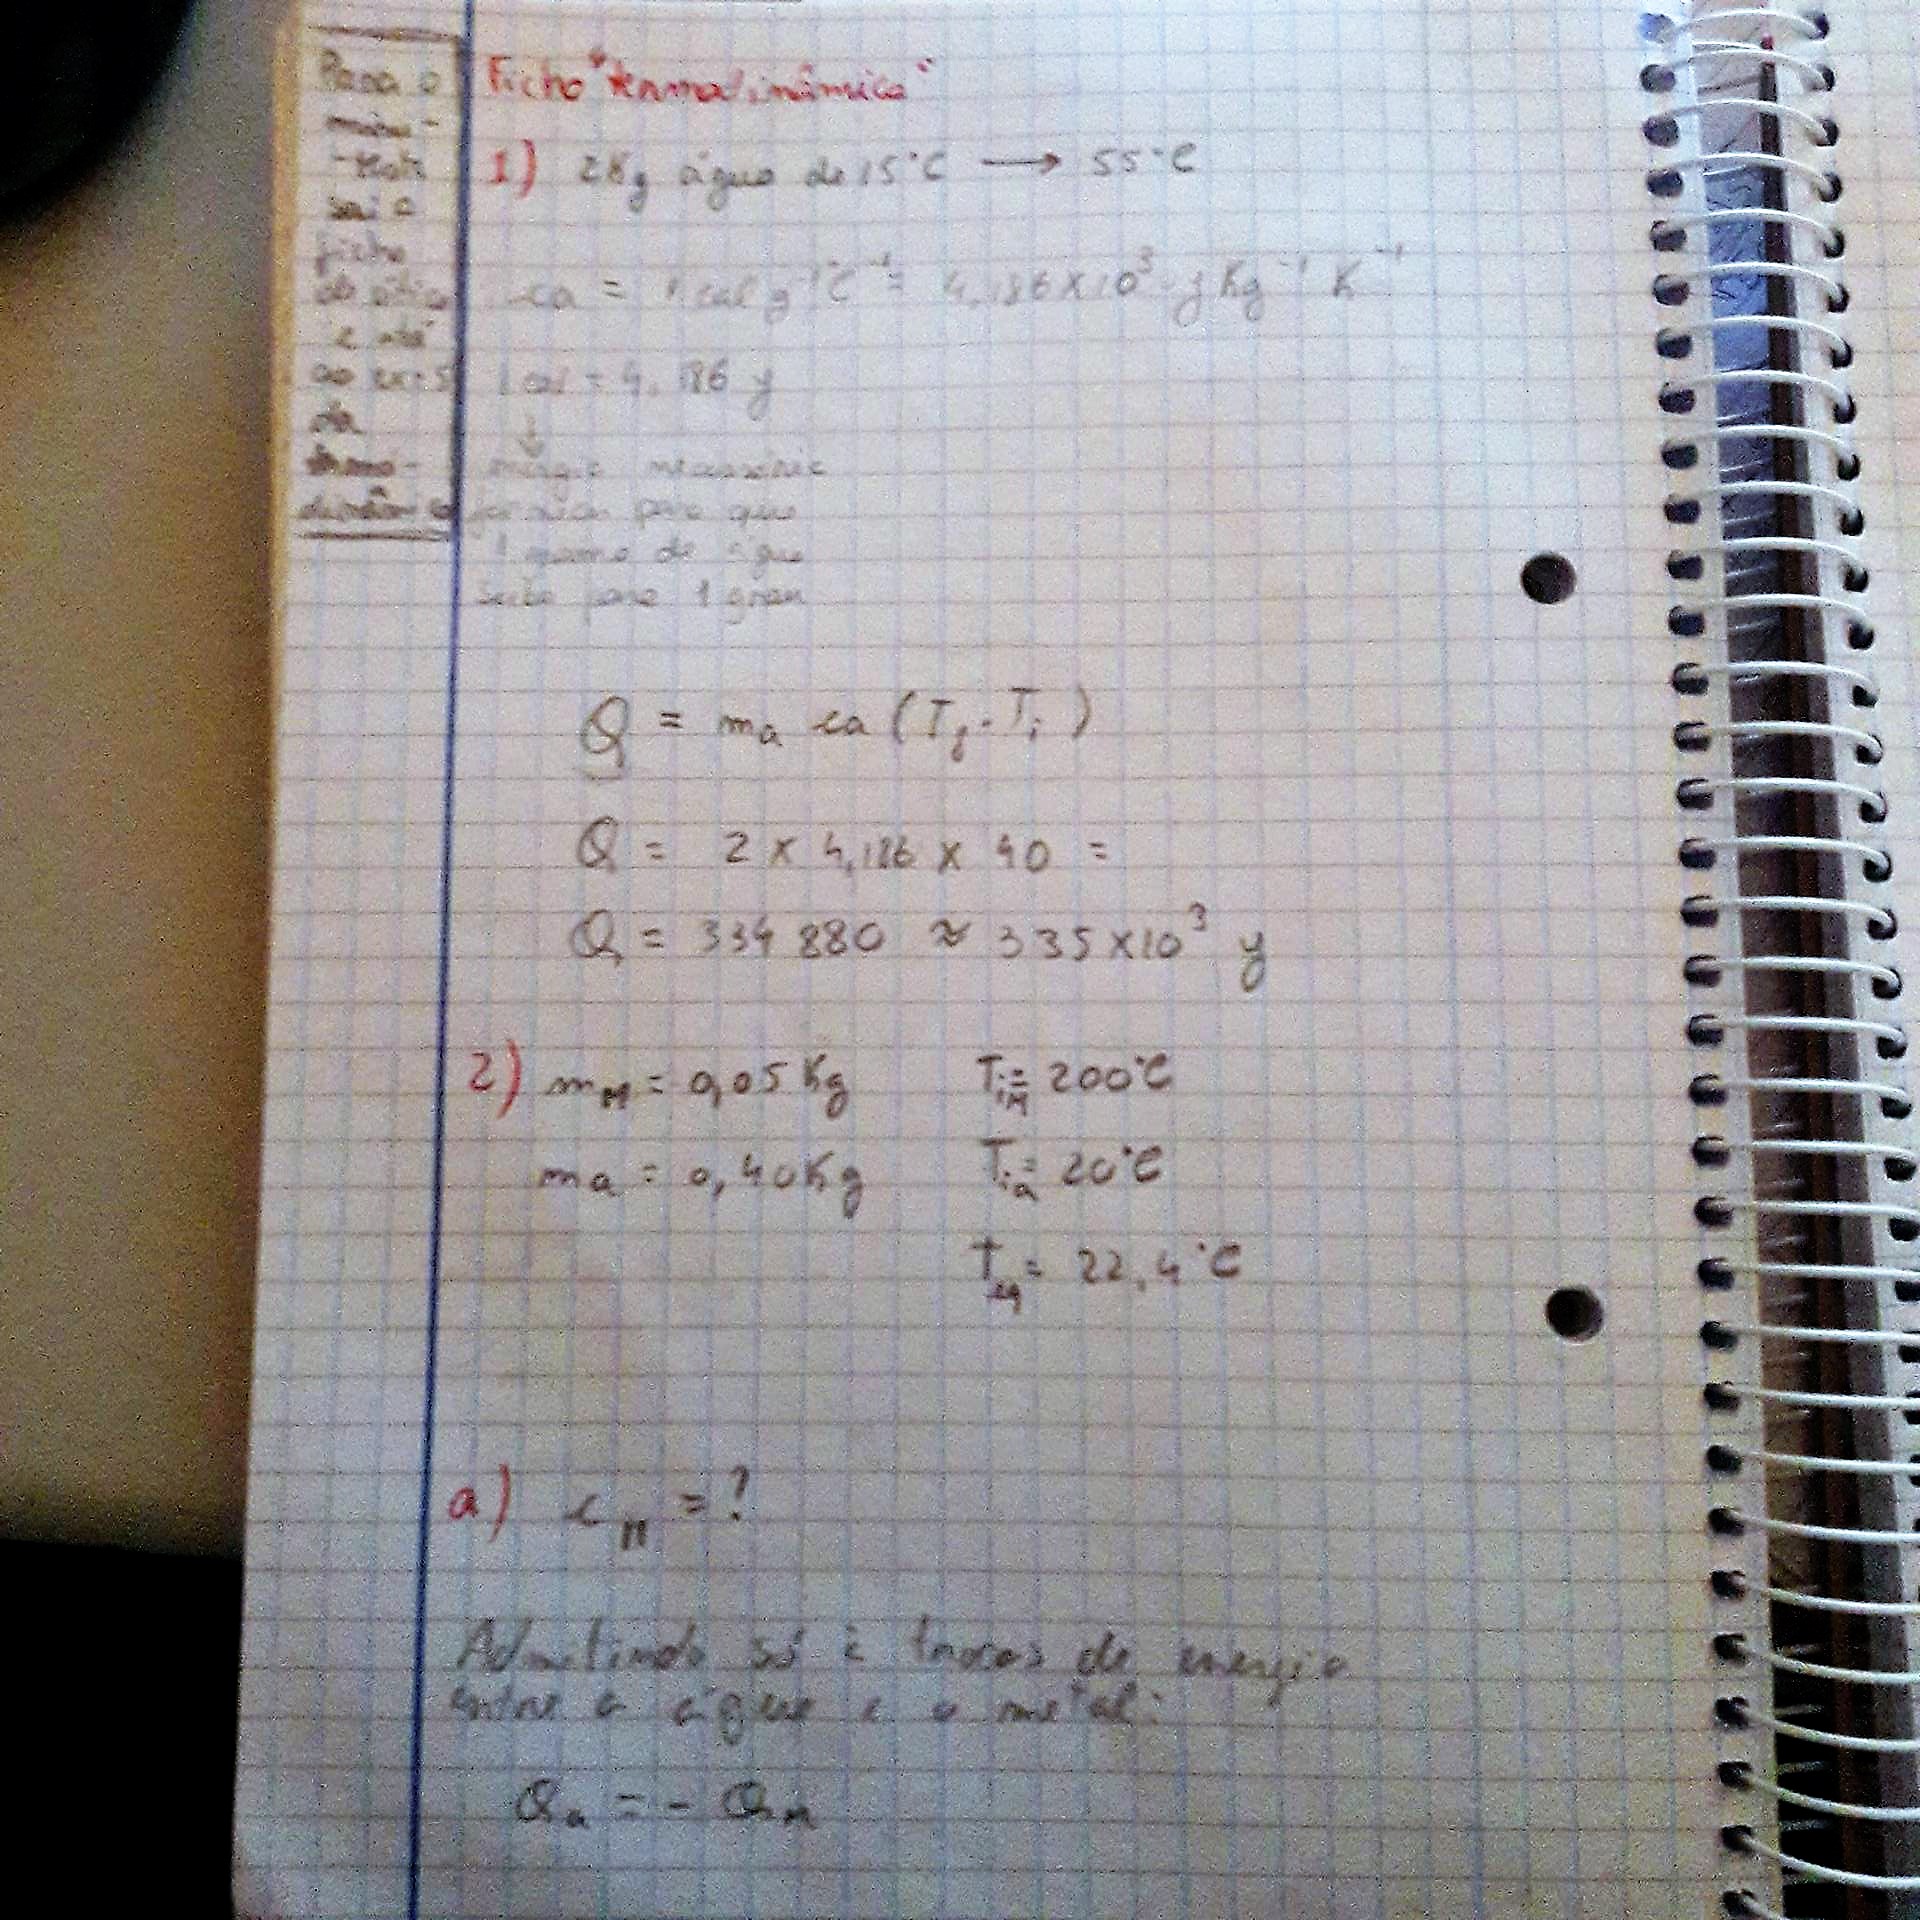 Para o
mini-
-teste
sai a
ficha
de ótica
e até
ao ex. 5
da
termo-
dinâmica
Ficha "termodinâmica"
1) 2Kg água de 15°C → 55°C
ca = 1 cal g⁻¹ °C⁻¹ = 4,186 x 10³ J Kg⁻¹ K⁻¹
1 cal = 4,186 J
↓
energia necessária
fornecer para que
1 grama de água
suba para 1 grau
Q = ma ca (Tf - Ti)
Q = 2 x 4,186 x 40 =
Q = 334 880 ≈ 335 x 10³ J
2) mM = 0,05 Kg TiM = 200°C
ma = 0,40 Kg Tia = 20°C
Teq = 22,4 °C
a) cM = ?
Admitindo só a trocas de energia
entre a água e o metal:
Qa = - QM